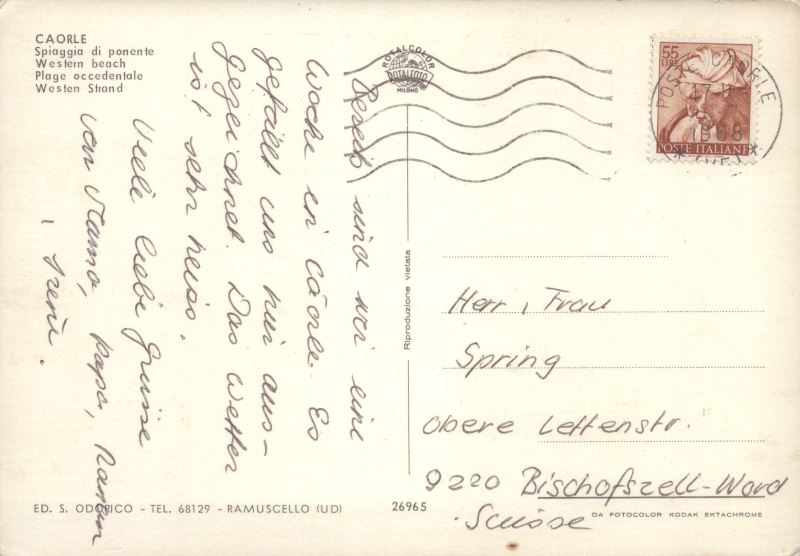 CAORLE
Spiaggia di ponente
Western beach
Plage occedentale
Westen Strand
ROTALCOLOR
ROTALFOTO
MILANO
55
LIRE
POSTE ITALIANE
POSTE CAORLE
1968
Bereits sind wir eine
Woche in Caorle. Es
gefällt uns hier aus-
gezeichnet. Das Wetter
ist sehr heiss.
Viele liebe Grüsse
von Mama, Papa,
Irene.
Riproduzione vietata
Herr, Frau
Spring
Obere Lettenstr.
9220 Bischofszell-Nord
Suisse
ED. S. ODORICO - TEL. 68129 - RAMUSCELLO (UD)
26965
DA FOTOCOLOR KODAK EKTACHROME